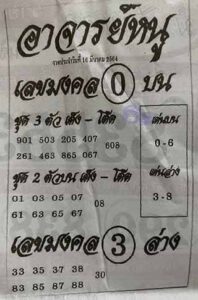 อาจารย์หนู
งวดประจำวันที่ 16 มีนาคม 2564
เลขมงคล 0 บน
ชุด 3 ตัว เต็ง - โต๊ด
901 503 205 407
261 463 865 067
608
เด่นบน
0-6
ชุด 2 ตัวบน เต็ง - โต๊ด
01 03 05 07
61 63 65 67
08
เด่นล่าง
3-8
เลขมงคล 3 ล่าง
33 35 37 38
83 85 87 88
30